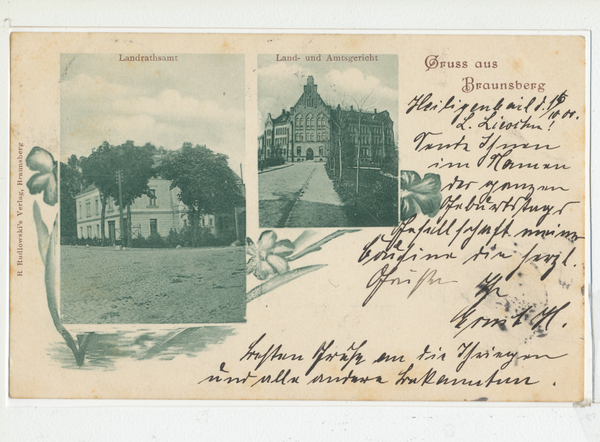 Landrathsamt
Land- und Amtsgericht
Gruss aus
Braunsberg
R Rudlowski's Verlag, Braunsberg
Heiligenbeil d.
L.
Sende Ihnen
im Namen
der ganzen
Geburtstags
Gesellschaft meiner
Cousine die herzl.
Grüße Ihr
Ernst H.
Besten Gruß an die Ihrigen
und alle andere Bekannten.